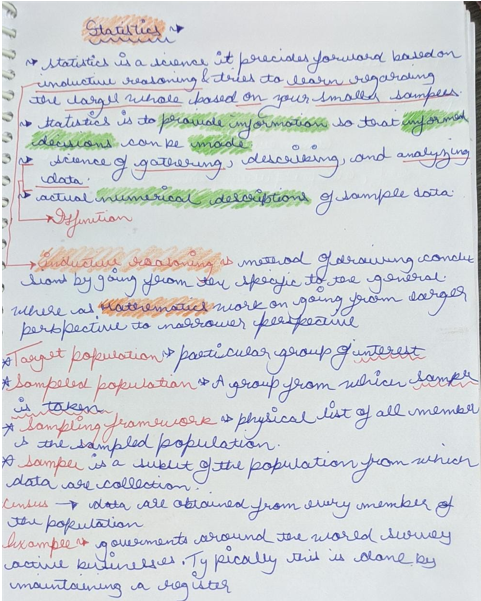 Statistics
statistics is a science it precides forward based on
inductive reasoning & tries to learn regarding
the larger whole based on your smaller sampels.
statistics is to provide information so that informed
decisions can be made
science of gathering, describing, and analyzing
data.
actual numerical descriptions of sample data.
Definition
inductive reasoning is method of drawing conclu
sions by going from the specific to the general.
where as mathematics work on going from larger
perspective to narrower perspective
* Target population → particular group of interest
* Sampeled population → A group from which sampel
is taken
* Sampling framework → physical list of all member
is the sampled population.
* Sampel is a subset of the population from which
data are collection.
Census → data are obtained from every member of
the population
Example → goverments around the world survey
active businesses. Typically this is done by
maintaining a register